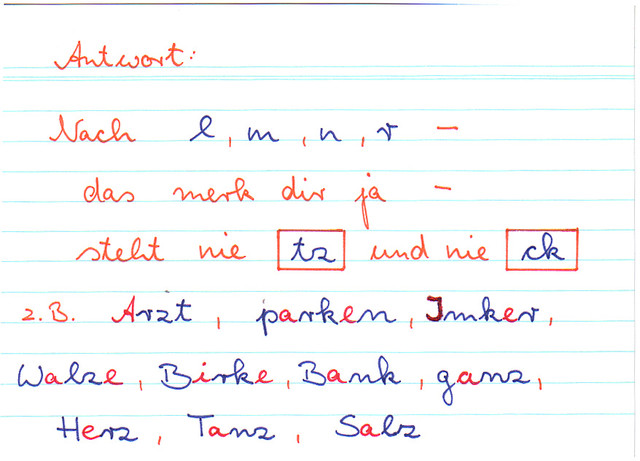 Antwort:
Nach l, m, n, r –
das merk dir ja –
steht nie tz und nie ck
z.B. Arzt, parken, Imker,
Walze, Birke, Bank, ganz,
Herz, Tanz, Salz